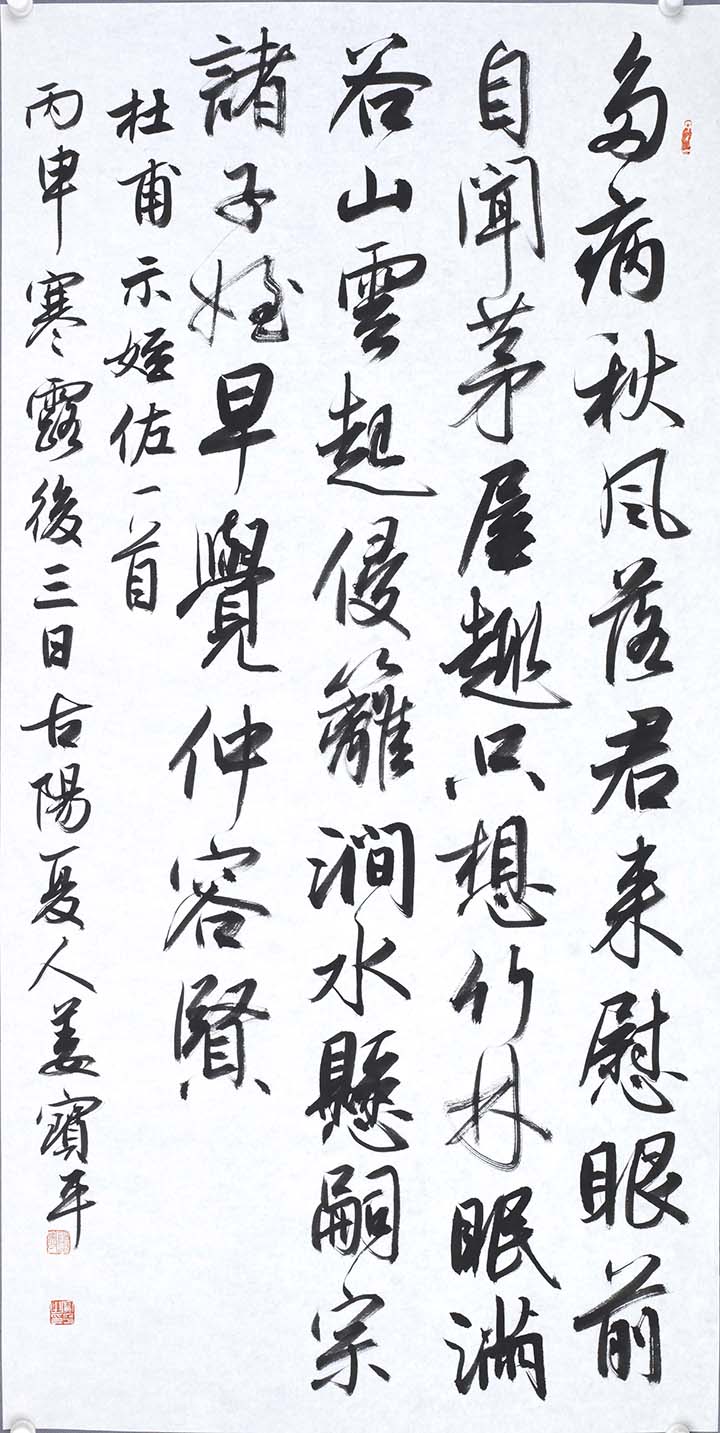 多病秋風落君来慰眼前
自聞茅屋趣只想竹林眠滿
谷山雲起侵籬澗水懸嗣宗
諸子姪早覺仲容賢
杜甫示姪佐一首
丙申寒露後三日古陽夏人姜寶平